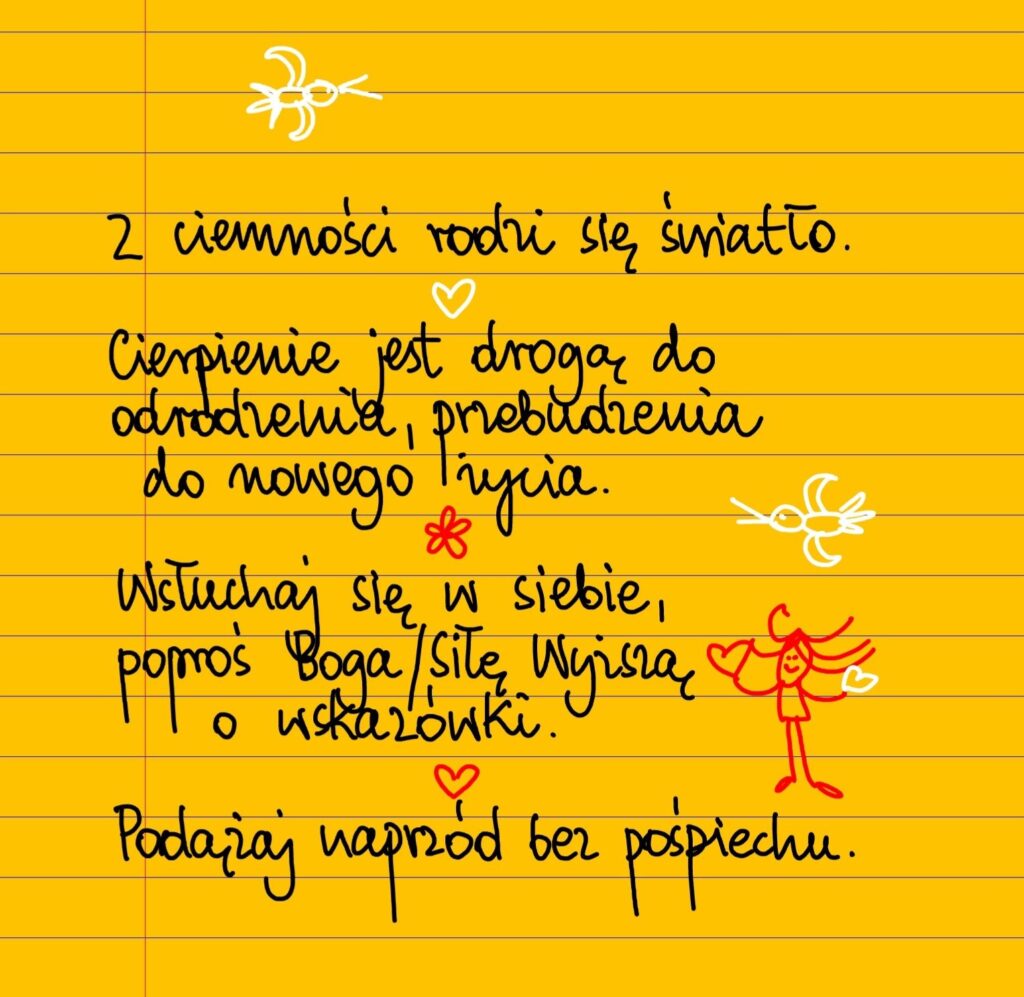 Z ciemności rodzi się światło.
Cierpienie jest drogą do
odrodzenia, przebudzenia
do nowego życia.
Wsłuchaj się w siebie,
poproś Boga/Siłę Wyższą
o wskazówki.
Podążaj naprzód bez pośpiechu.